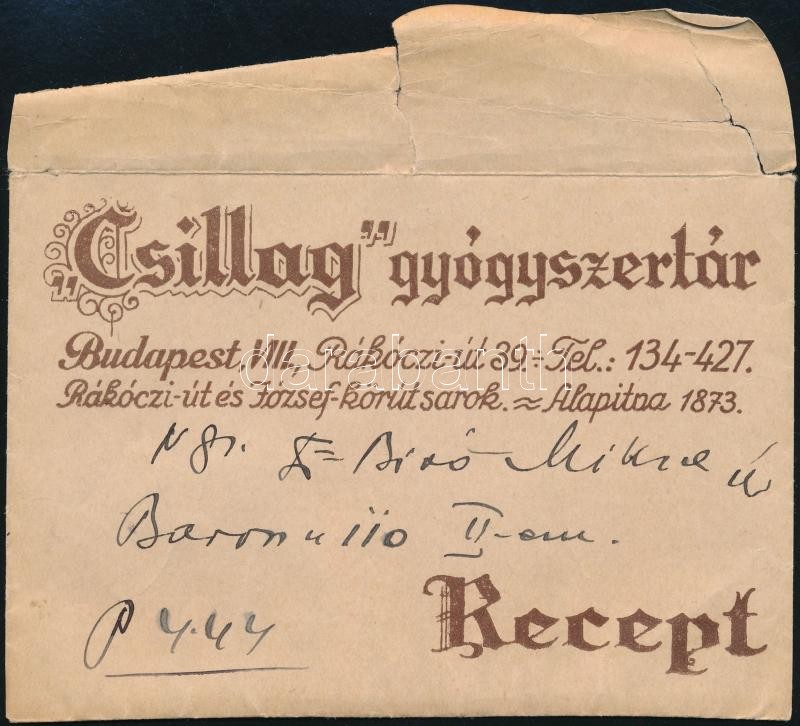 „Csillag” gyógyszertár
Budapest, VIII., Rákóczi-út 39. = Tel.: 134-427.
Rákóczi-út és József-körút sarok. ≈ Alapitva 1873.
darabanth
Ngs. Biró Miksa úr
II-em.
P 4.44
Recept